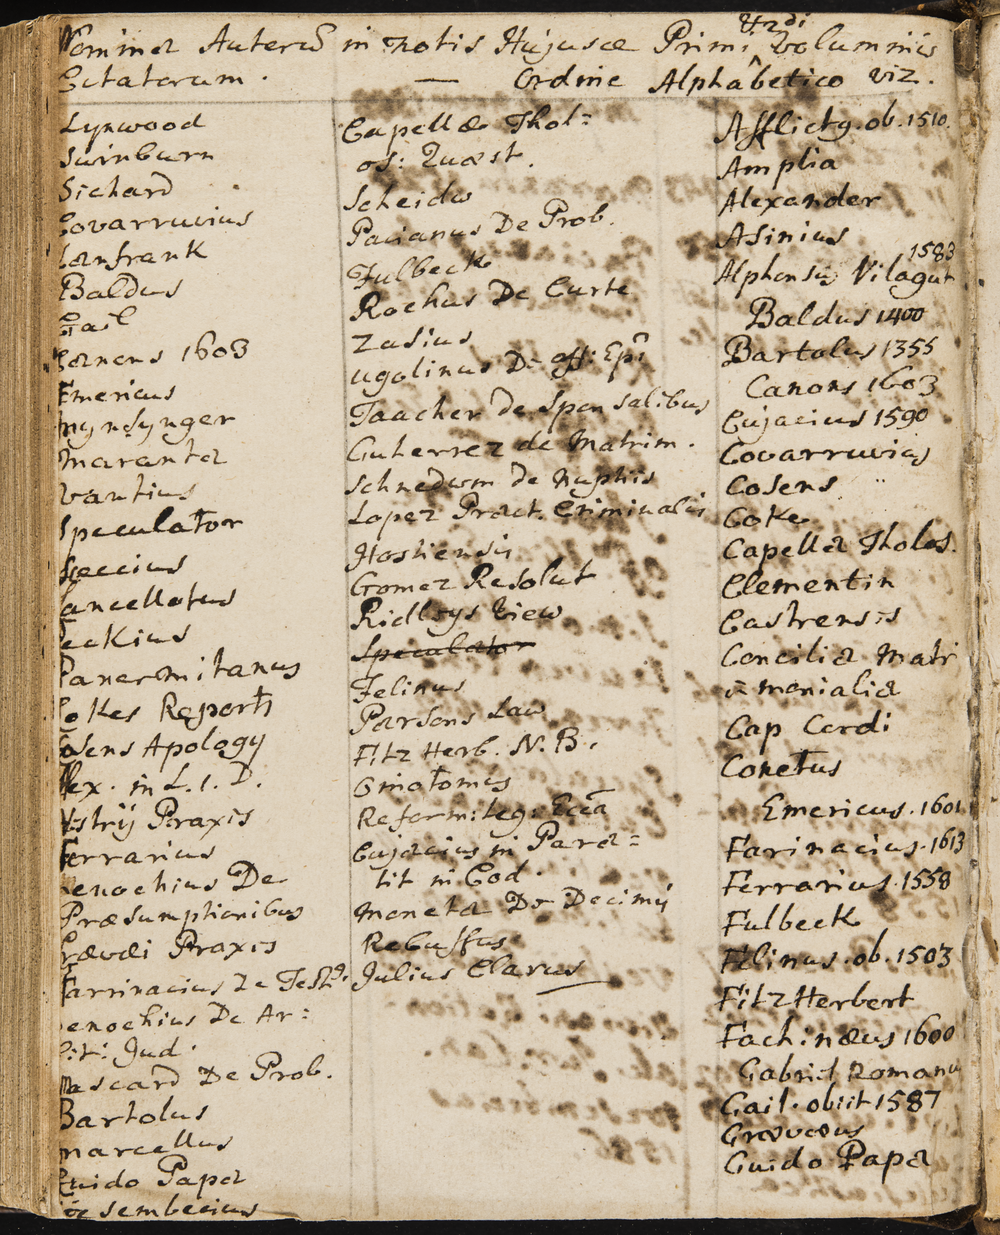 Nomina Autorū in notis Hujusce Primi, & 2di volumnis
Citatorum. — Ordine Alphabetico viz.
Lynwood
Swinburn
Sichard
Covarruvius
Lanfrank
Baldus
Gail
Canons 1603
Emericus
Mynsynger
Maranta
Vantius
Speculator
Soccius
Lancellotus
Peckius
Panermitanus
Cokes Reports
Cosens Apology
Alex. in L. 1. D.
Vestrij Praxis
Ferrarius
Menochius De
Præsumptionibus
Grævæi Praxis
Farrinacius De Test:
Menochius De Ar:
bit: Jud.
Mascard De Prob.
Bartolus
Marcellus
Guido Papa
Wesembecius
Capellæ Thol=
os: Quæst.
Scheidw
Pacianus De Prob.
Fulbeck
Rochus De Curte
Zasius
Ugolinus De off: Epi
Taacher de Spon salibus
Guterrez de Matrim.
Schnedwm de Nuptiis
Lopez Pract. Criminalis
Hostiensis
Gomez Resolut
Ridleys View
Speculator
Felinus
Parsons Law
Fitz Herb. N. B.
Oniatomus
Reform: leg: Ecca
Cujacius in Para=
tit in Cod.
Moneta De Decimis
Rebuffus
Julius Clarus
Afflictg. ob. 1510.
Amplia
Alexander
Asinius
1583
Alphonsus Vilagut
Baldus 1400
Bartolus 1355
Canons 1603
Cujacius 1590
Covarruvias
Cosens
Coke
Capella Tholos.
Clementin
Castrensis
Concilia Matri
= monialia
Cap Cordi
Conetus
Emericus. 1601
Farinacius. 1613
Ferrarius. 1558
Fulbeck
Filinus. ob. 1503
FitzHerbert
Fachinæus 1600
Gabriel Romanu
Gail. obiit 1587
Grævæus
Guido Papa